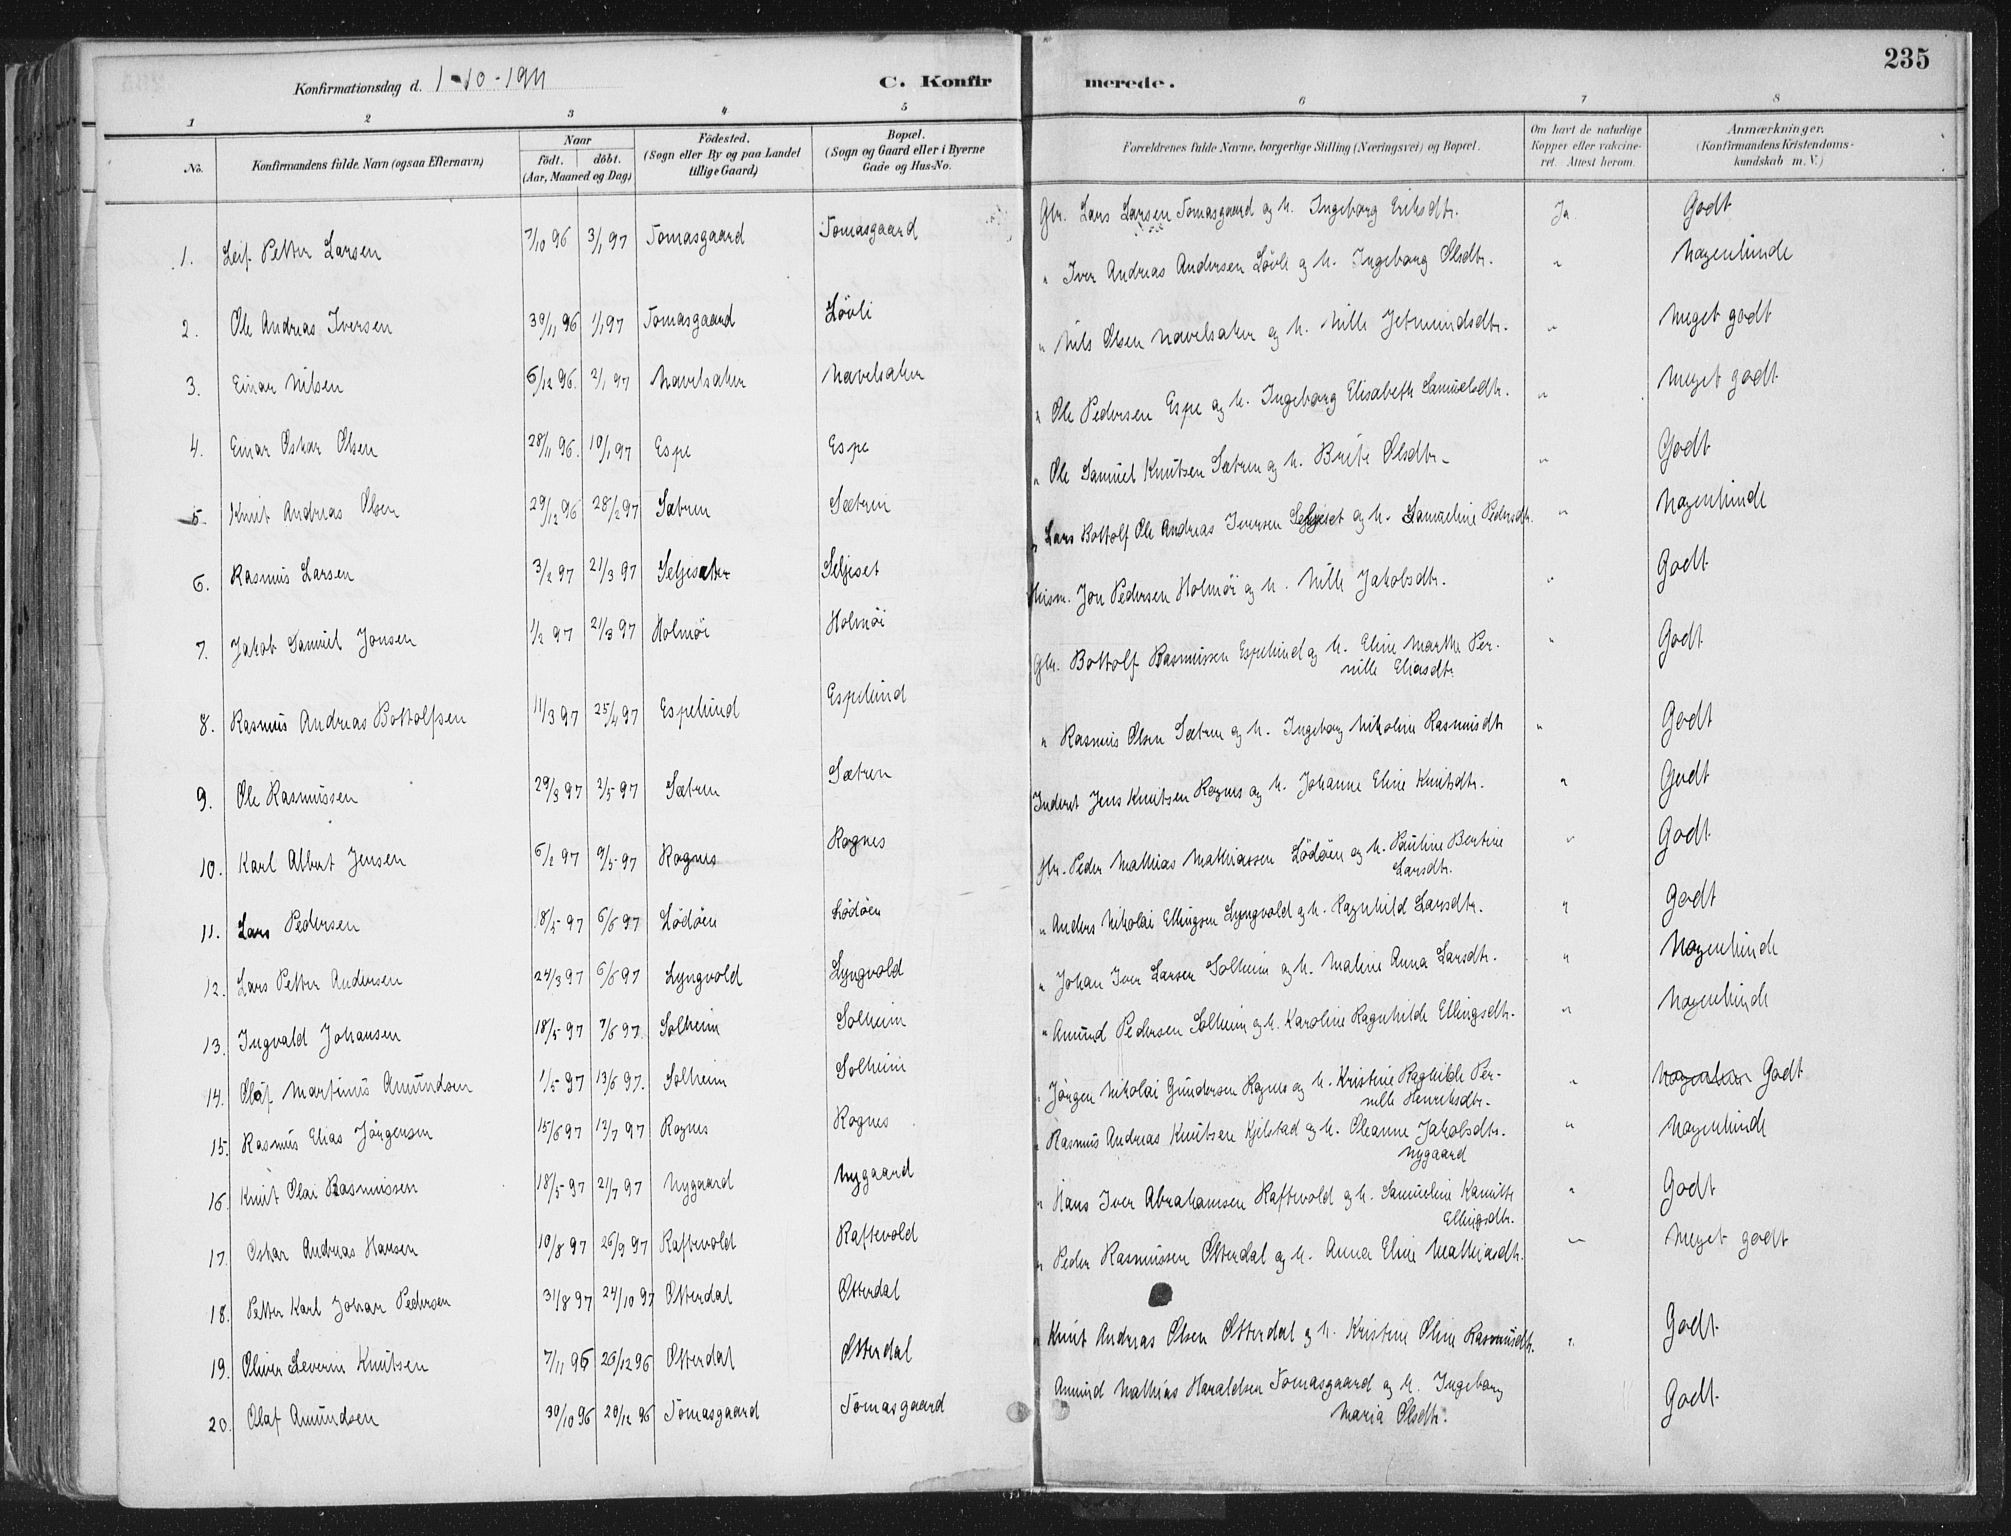 235
Konfirmationsdag d. 1-10-1911 C. Konfir merede.
1 2 3 4 5 6 7 8
No. Konfirmandens fulde Navn (ogsaa Efternavn) Naar födt. döbt. (Aar, Maaned og Dag) Födested. (Sogn eller By og paa Landet tillige Gaard) Bopæl. (Sogn og Gaard eller i Byerne Gade og Hus-No. Forældrenes fulde Navne, borgerlige Stilling (Næringsvei) og Bopæl. Om havt de naturlige Kopper eller vakcineret. Attest herom. Anmærkninger. (Konfirmandens Kristendomskundskab m. V.)
1. Leif Petter Larsen 7/10 96 3/1 97 Tomasgaard Tomasgaard Gbr. Lars Larsen Tomasgaard og h. Ingeborg Eriksdtr. Ja Godt
2. Ole Andreas Iversen 30/11 96 1/1 97 Tomasgaard Lövli " Iver Andreas Andersen Lövli og h. Ingeborg Olsdtr. " Nogenlunde
3. Einar Nilsen 6/12 96. 2/1 97 Navelsaker Navelsaker " Nils Olsen Navelsaker og h. Nille Jetmundsdtr. " Meget godt
4. Einar Oskar Olsen 28/11 96. 10/1 97 Espe Espe " Ole Pedersen Espe og h. Ingeborg Elisabeth Samuelsdtr. " Meget godt
5. Knut Andreas Olsen 29/12 96 28/2 97 Sætren Sætren " Ole Samuel Knutsen Sætren og h. Brite Olsdtr. " Godt
6. Rasmus Larsen 3/2 97 21/3 97 Seljesæter Seljeset " Lars Bottolf Ole Andreas Iversen Seljeset og h. Samueline Pedersdtr. " Nogenlunde
7. Jakob Samuel Jonsen 1/2 97 21/3 97 Holmöi Holmöi Husm. Jon Pedersen Holmöi og h. Nille Jakobsdtr. " Godt
8. Rasmus Andreas Bottolfsen 11/3 97 25/4 97 Espelund Espelund Gbr. Bottolf Rasmussen Espelund og h. Eline Marthe Per-
nille Eliasdtr. " Godt
9. Ole Rasmussen 29/3 97 2/5 97 Sætren Sætren " Rasmus Olsen Sætren og h. Ingeborg Nikoline Rasmusdtr " Godt
10. Karl Albert Jensen 6/2 97 9/5 97 Rognes Rognes Inderst Jens Knutsen Rognes og h. Johanne Eline Knutsdtr. " Godt
11. Lars Pedersen 18/5 97 6/6 97 Lödöen Lödöen Gbr. Peder Mathias Mathiassen Lödöen og h. Pauline Bertine
Larsdtr. " Godt
12. Lars Petter Andersen 24/3 97 6/6 97 Lyngvold Lyngvold " Anders Nikolai Ellingsen Lyngvold og h. Ragnhild Larsdtr. " Godt
13. Ingvald Johansen 18/5 97 7/6 97. Solheim Solheim " Johan Iver Larsen Solheim og h. Maline Anna Larsdtr. " Nogenlunde
14. Olaf Martinus Amundsen 1/5 97 13/6 97. Solheim Solheim " Amund Pedersen Solheim og h. Karoline Ragnhilde Ellingsdtr. " Nogenlunde
15. Rasmus Elias Jörgensen 15/6 97 12/7 97 Rognes Rognes " Jörgen Nikolai Gundersen Rognes og h. Kristine Raghilde Per-
nille Henriksdtr. " Godt
16. Knut Olai Rasmussen 18/5 97 21/7 97 Nygaard Nygaard " Rasmus Andreas Knutsen Kjelstad og h. Oleanne Jakobsdtr.
Nygaard " Nogenlunde
17. Oskar Andreas Hansen 10/8 97 26/9 97 Raftevold Raftevold " Hans Iver Abrahamsen Raftevold og h. Samueline Kamilte
Ellingsdtr. " Godt
18. Petter Karl Johan Pedersen 31/8 97 24/10 97 Otterdal Otterdal " Peder Rasmussen Otterdal og h. Anna Eline Mathiasdtr. " Meget godt
19. Oliver Severin Knutsen 7/11 96 26/12 96 Otterdal Otterdal " Knut Andreas Olsen Otterdal og h. Kristine Oline Rasmusdtr. " Godt
20. Olaf Amundsen 30/10 96 20/12 96 Tomasgaard Tomasgaard Amund Mathias Haraldsen Tomasgaard og h. Ingeborg
Maria Olsdtr. Godt